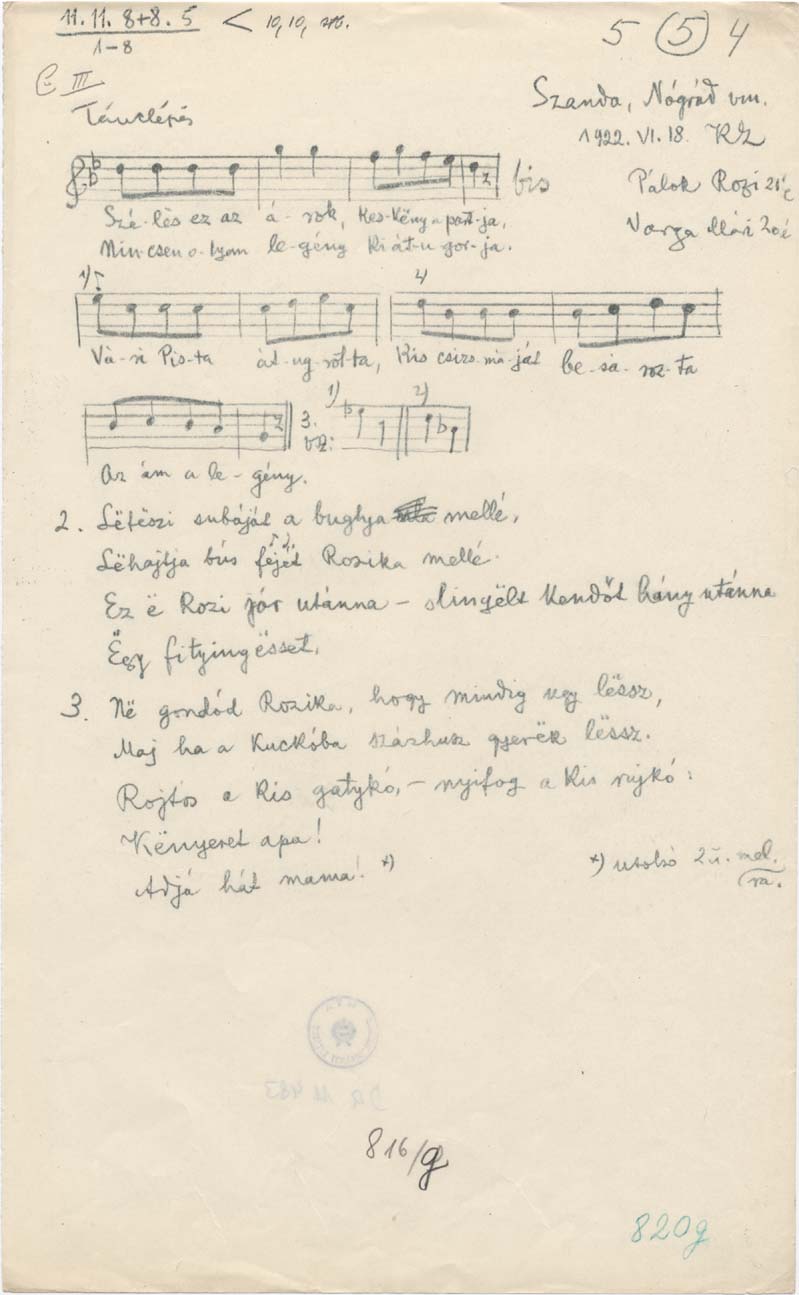 11. 11. 8+8. 5 < 10, 10, stb.
1-8
5 (5) 4
C III
Szanda, Nógrád vm.
Tánclépés
1922. VI. 18. KZ
bis
Pálok Rozi 21 é
Szé-lës ez az á-rok, Kes-këny a part-ja,
Varga Mári 20 é
Nin-csen o-lyan le-gény ki át-u-gor-ja.
1) 4)
Vá-ri Pis-ta át-ug-rot-ta, Kis csizs-má-ját be-sá-roz-ta
3. vsz: 1) 2)
Az ám a le-gény.
2. Lëtëszi subáját a buglya mellé,
Lëhajtja bús fejét Rozika mellé.
Ez ë Rozi jár utánna – slingëlt kendőt hány utánna
Ëgy fityingësset.
3. Në gondód Rozika, hogy mindig ugy lëssz,
Maj ha a kuckóba százhusz gyerëk lëssz.
Rojtos a kis gatykó, – nyifog a kis rujkó:
Kënyeret apa!
Adjá hát mama! *)
*) utolsó 2 ü. mel.
ra.
816/g
820g